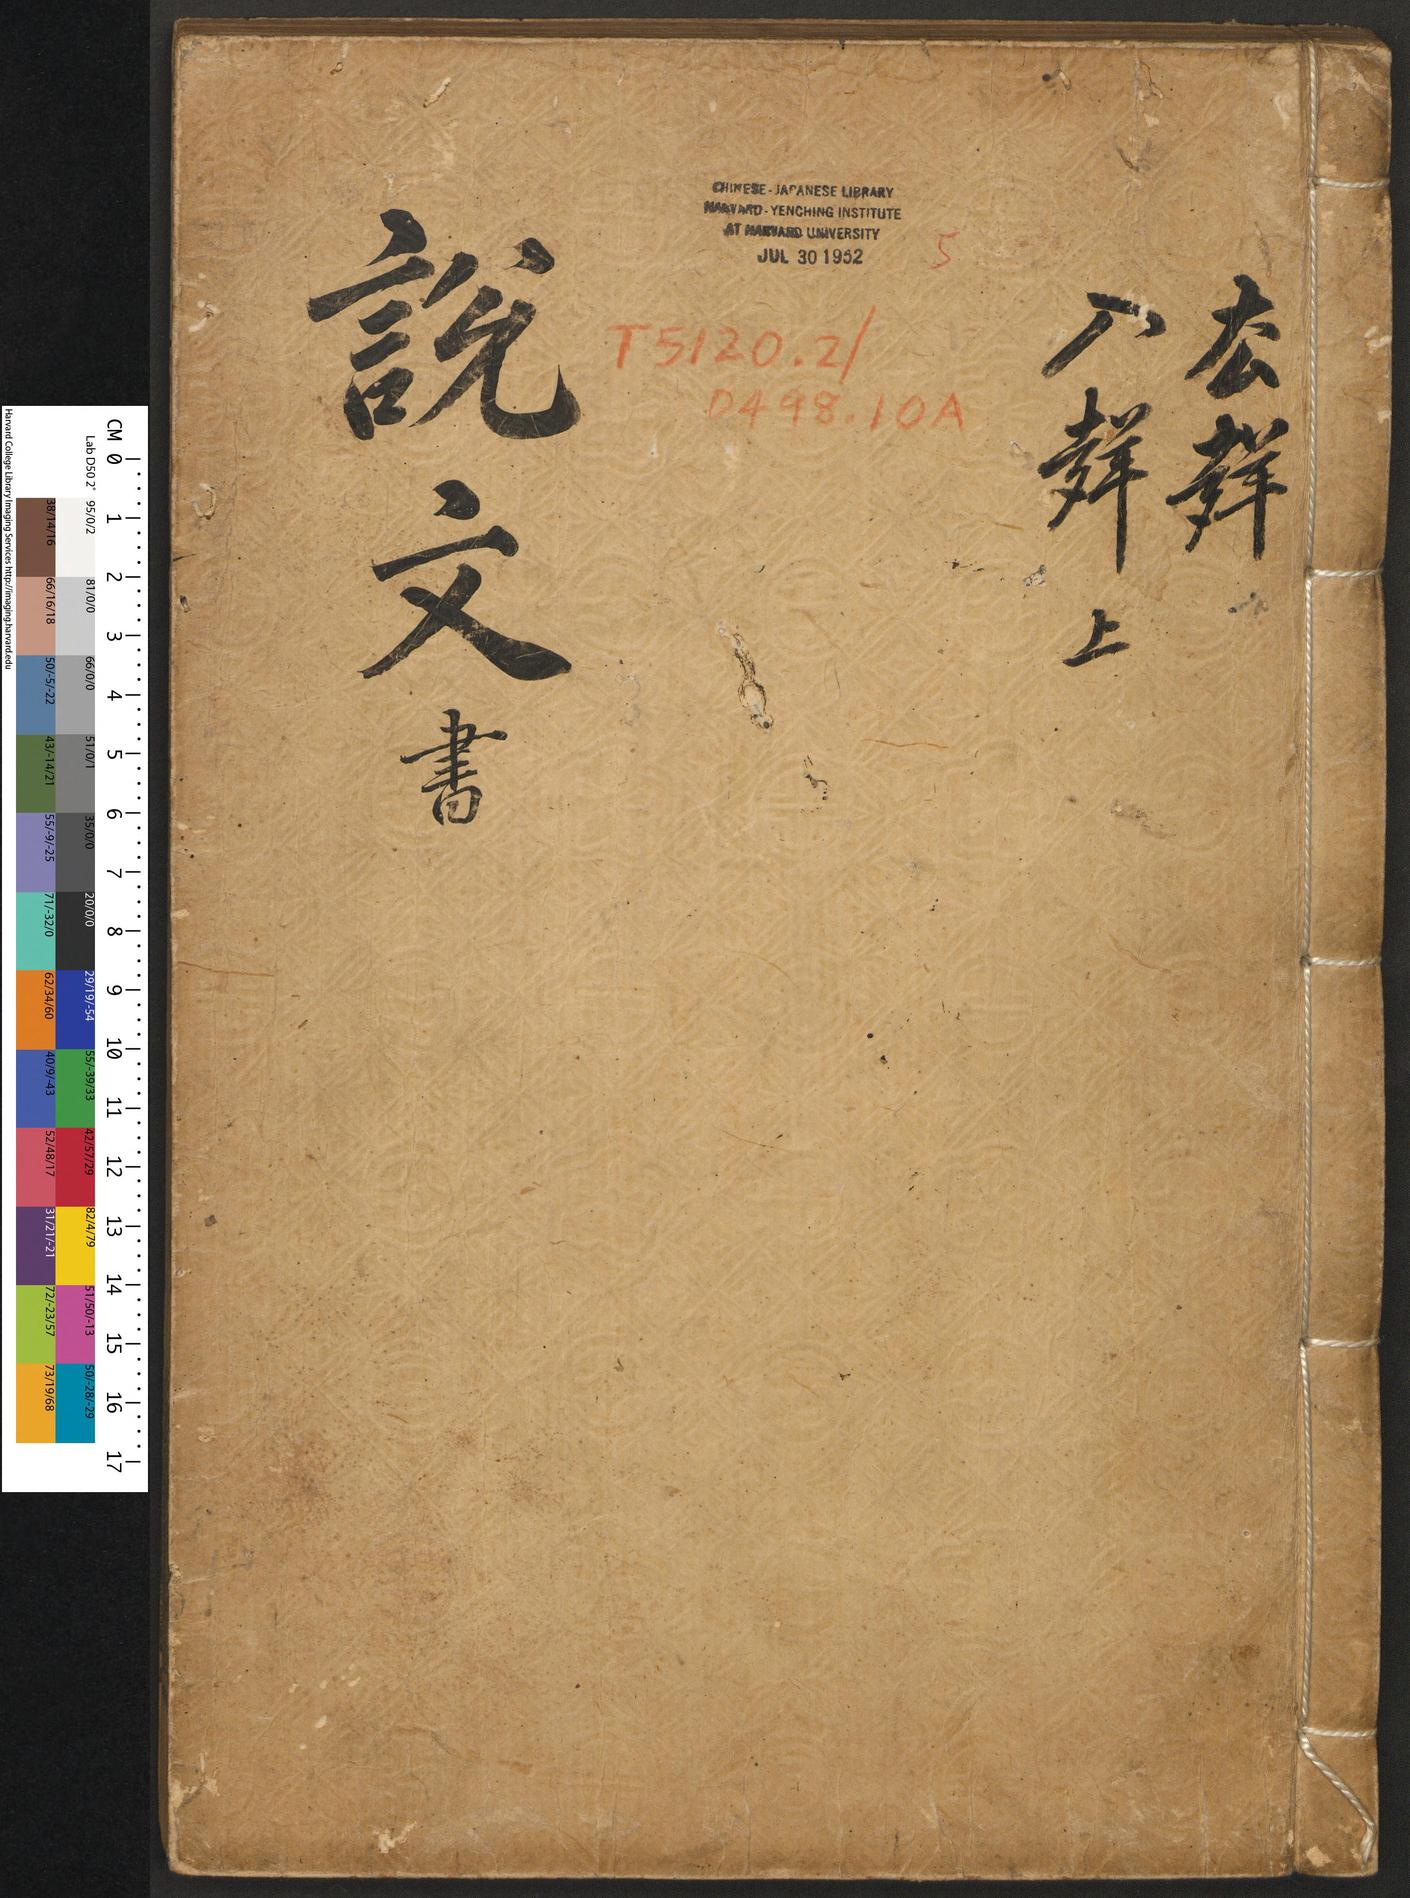 去聲
入聲 上
說文書
CHINESE-JAPANESE LIBRARY
HARVARD-YENCHING INSTITUTE
AT HARVARD UNIVERSITY
JUL 30 1952
5
T5120.2/
D498.10A
CM 0 1 2 3 4 5 6 7 8 9 10 11 12 13 14 15 16 17
Lab D50 2° 95/0/2 81/0/0 66/0/0 51/0/1 35/0/0 20/0/0 29/19/-54 55/-39/33 42/57/29 82/4/79 51/50/-13 50/-28/-29
38/14/16 66/16/18 50/-5/-22 43/-14/21 55/-9/-25 71/-32/0 62/34/60 40/9/-43 52/48/17 31/21/-21 72/-23/57 73/19/68
Harvard College Library Imaging Services http://imaging.harvard.edu